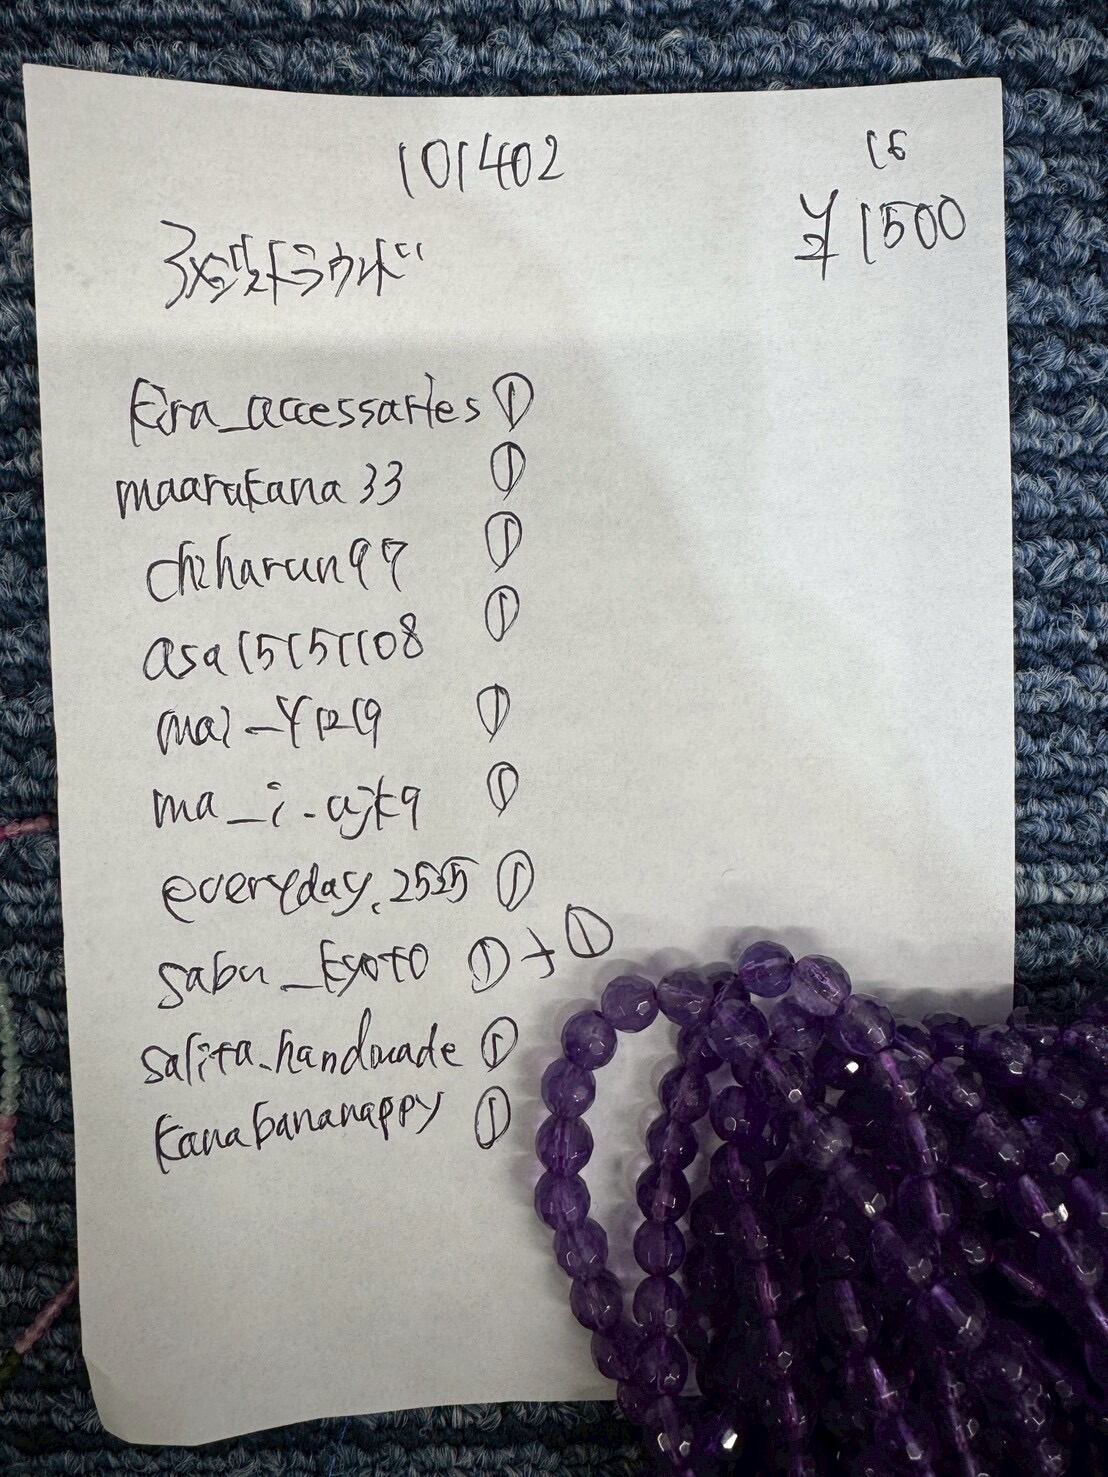 101402
16
¥1500
アメジストラウンド
kira_accessaries ①
maarukana33 ①
chiharun97 ①
asa15151108 ①
mai_y1219 ①
ma_i_ajk9 ①
everyday.2525 ①
sabu_kyoto ①+①
salita_handmade ①
kanabananappy ①